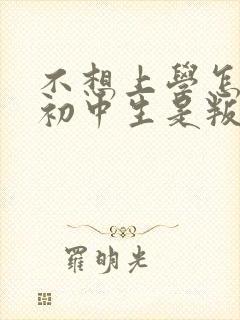 不想上學怎
初中生是叛
羅明光